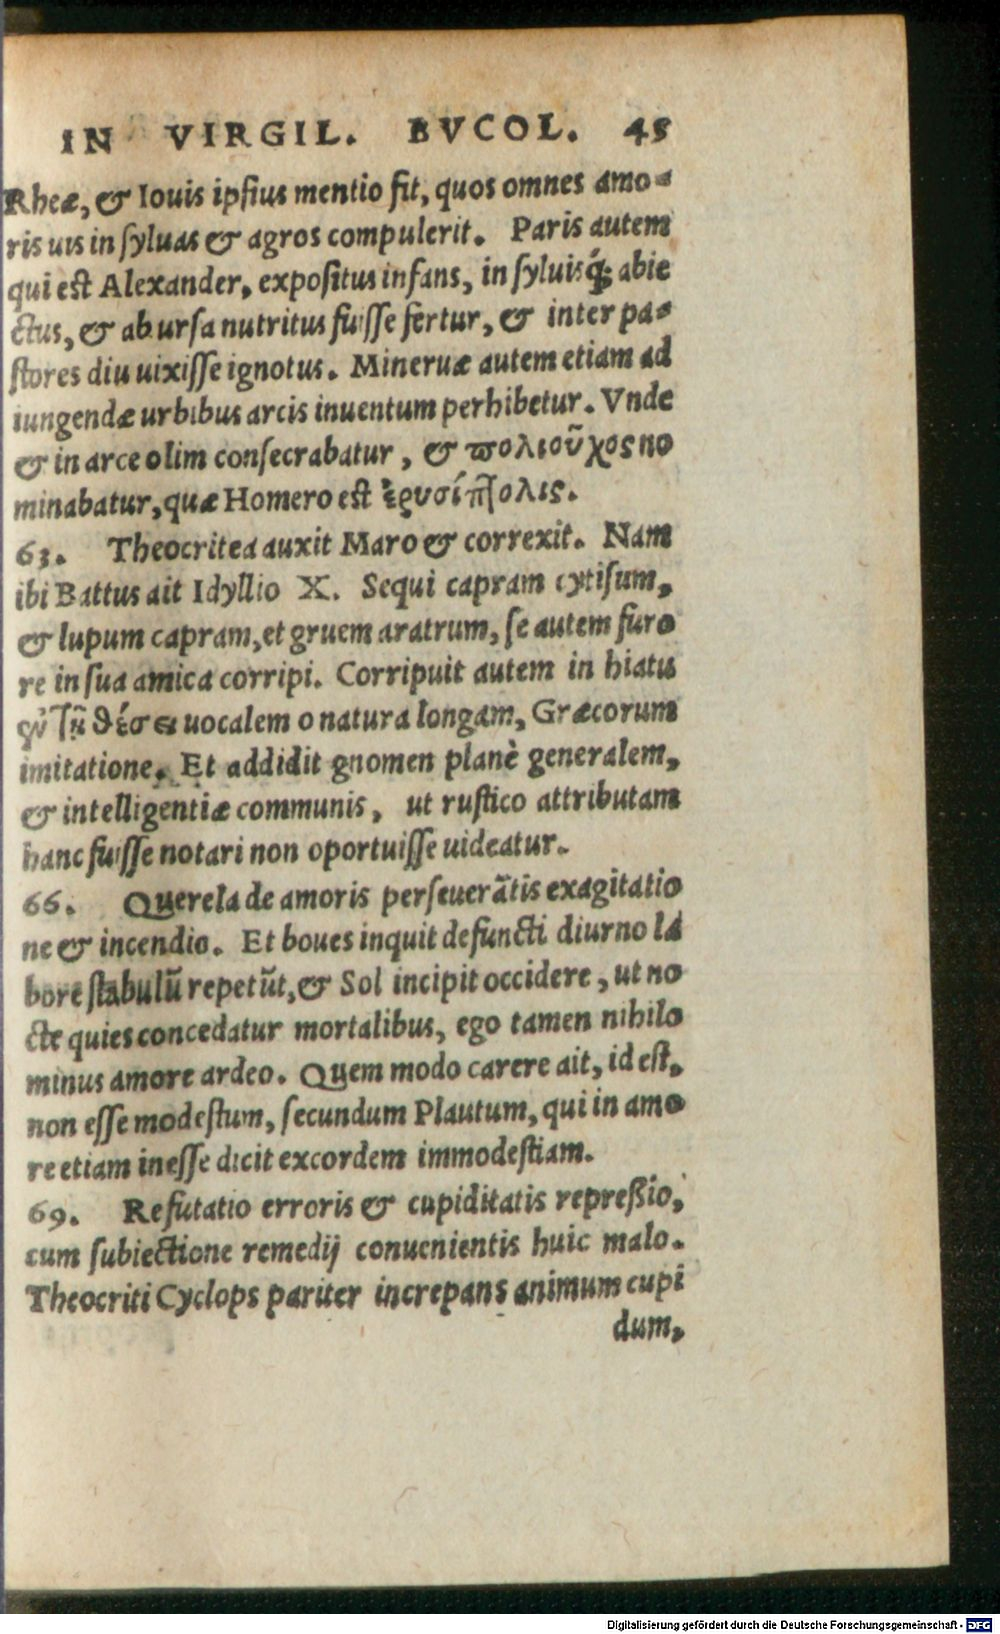 IN VIRGIL. BVCOL. 45
Rheæ, & Iouis ipſius mentio fit, quos omnes amo-
ris uis in ſyluas & agros compulerit. Paris autem
qui est Alexander, expoſitus infans, in ſyluisq́; abie
ctus, & ab urſa nutritus fuiſſe fertur, & inter pa-
ſtores diu uixiſſe ignotus. Mineruæ autem etiam ad
iungendæ urbibus arcis inuentum perhibetur. Vnde
& in arce olim conſecrabatur, & πολιοῦχος no
minabatur, quæ Homero est ἐρυσίπολις.
63. Theocritea auxit Maro & correxit. Nam
ibi Battus ait Idyllio X. Sequi capram cytiſum,
& lupum capram, et gruem aratrum, ſe autem furo
re in ſua amica corripi. Corripuit autem in hiatu
θέσει uocalem o natura longam, Græcorum
imitatione. Et addidit gnomen planè generalem,
& intelligentiæ communis, ut ruſtico attributam
hanc fuiſſe notari non oportuiſſe uideatur.
66. Querela de amoris perſeuerātis exagitatio
ne & incendio. Et boues inquit defuncti diurno la
bore ſtabulū repetūt, & Sol incipit occidere, ut no
cte quies concedatur mortalibus, ego tamen nihilo
minus amore ardeo. Quem modo carere ait, id eſt,
non eſſe modeſtum, ſecundum Plautum, qui in amo
re etiam ineſſe dicit excordem immodeſtiam.
69. Refutatio erroris & cupiditatis repreßio,
cum ſubiectione remedij conuenientis huic malo.
Theocriti Cyclops pariter increpans animum cupi
dum,
Digitalisierung gefördert durch die Deutsche Forschungsgemeinschaft - DFG